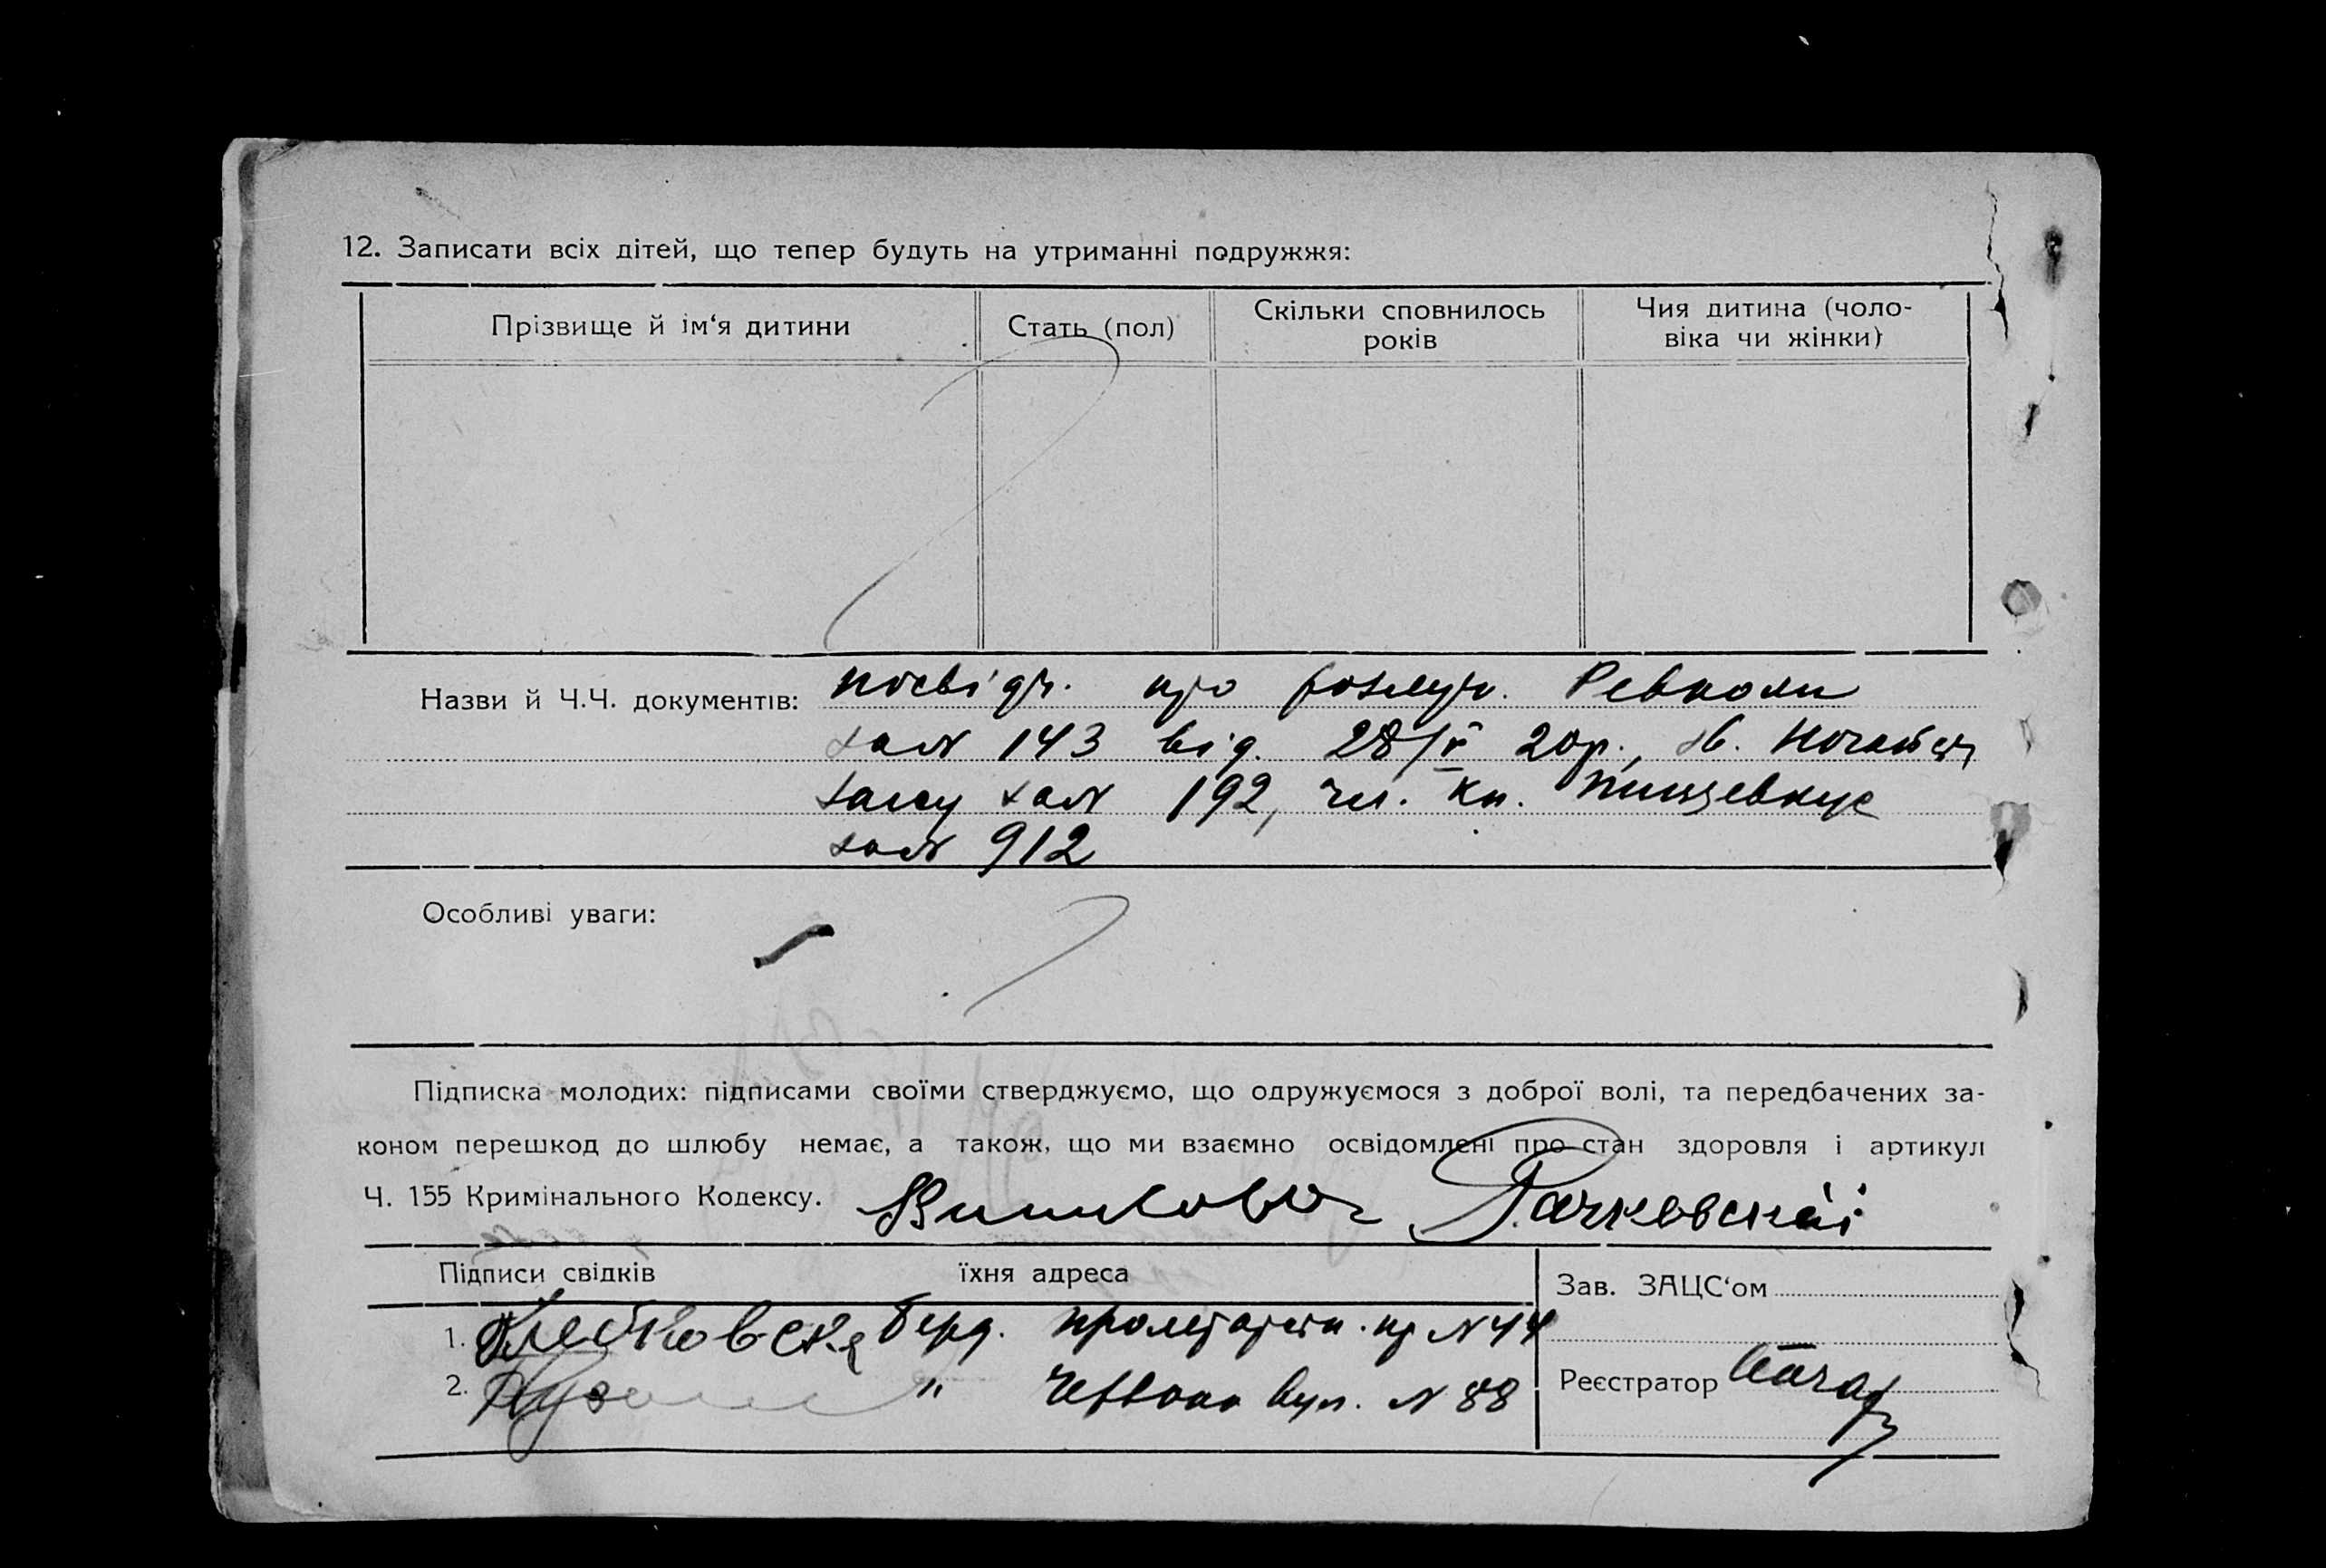 12. Записати всіх дітей, що тепер будуть на утриманні подружжя:
Прізвище й ім‘я дитини
Стать (пол)
Скільки сповнилось
років
Чия дитина (чоло-
віка чи жінки)
Назви й Ч.Ч. документів: посвідч. про розлуч. Ревкома
за № 143 від. 28/V 20р.,
за № 192, чл. кн.
за № 912
Особливі уваги:
Підписка молодих: підписами своїми стверджуємо, що одружуємося з доброї волі, та передбачених за-
коном перешкод до шлюбу немає, а також, що ми взаємно освідомлені про стан здоровля і артикул
Ч. 155 Кримінального Кодексу.
Підписи свідків їхня адреса
Зав. ЗАЦС‘ом
1. Берд. №44
2. " Червона вул. № 88
Реєстратор